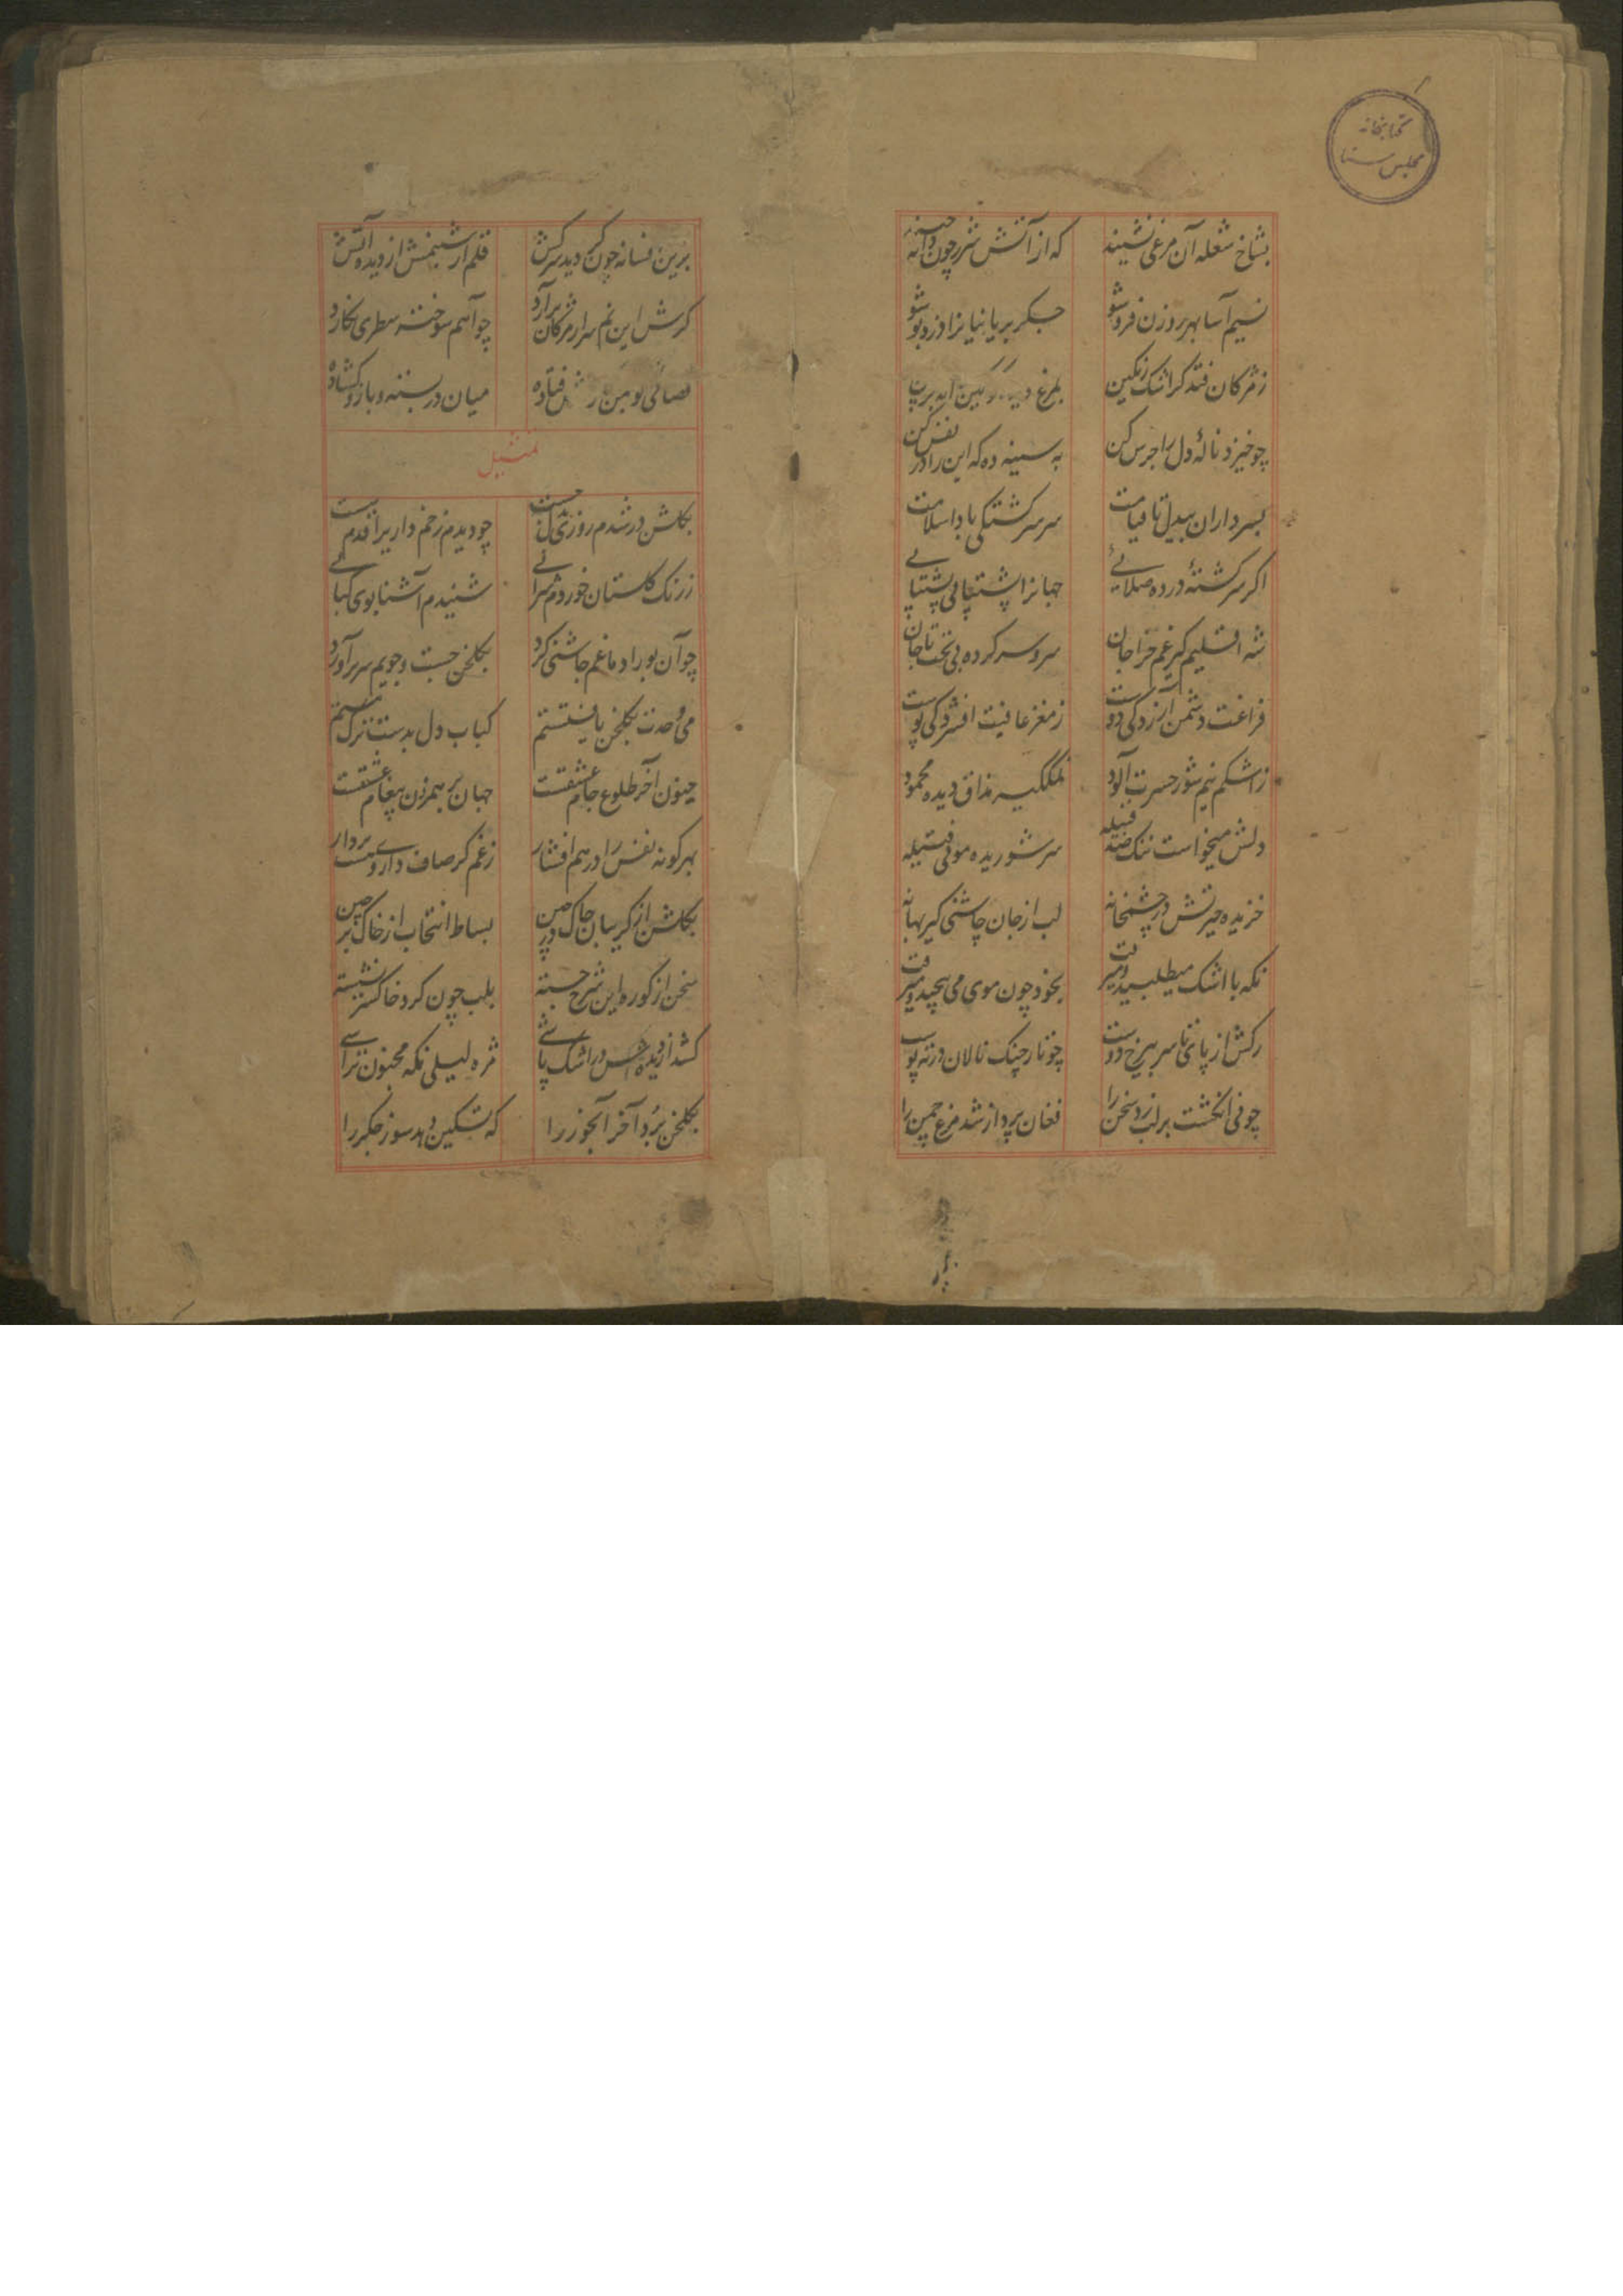 کتابخانه
مجلس سنا
بشاخ شعله آن مرغی نشیند که از آتش شرر چون دانه چیند
نسیم آسا بهر روزن فرو شو جکر بریانیانرا در زد بو شو
ز مژکان فتد کر اشک رنکین بمرغ
چو خیزد نالهٔ دل را جرس کن به سینه ده که این را در نفس کن
بسرداران بیدل تا قیامت سر سرکشتکی بادا سلامت
اکر سرکشتهٔ در ده صلایی جهانرا پشت پایی پشت پایی
شه اقلیم کیر غم خراجان سر و سر کرده بی تخت تاجان
فراغت دشمن آزردکی دوست ز مغز عافیت افشردکی پوست
ز اشکم نیم شور حسرت آلود نمکگیر مذاق دیده محمود
دلش میخواست ننک صد قبیله سر شوریده موئی فتیله
خزیده حیرتش در چشمخانه لب از جان چاشنی کیر بهانه
نکه با اشک میطلبید و میرفت بخود چون موی می پیچید و میرفت
رکش از پای تا سر بیرخ دوست چو تار چنک نالان در ته پوست
چو نی انکشت بر لب زد سخن را فغان پرداز شد مرغ چمن را
برین فسانه چون کردید سرکش قلم از شبنمش از دیده آتش
کرش این نم سر از مژکان برآرد چو آهم سوخته سطری نکارد
فتاده میان در بسته و بازو کشاده
تمثیل
بکلشن در شدم روزی چو دیدم زخم داریرا
ز رنک کلستان خوردم سرائی شنیدم آشنا بوی کبابی
چو آن بو را دماغم چاشنی کرد بکلخن جست و جویم سر برآورد
می وحدت بکلخن یافتستم کباب دل بدست ترک مستم
جنون آخر طلوع جام عشقست جهان برهمزن پیغام عشقست
بهر کونه نفس را در هم افشار ز غم کر صاف داری دست بردار
بکلشن از کریبان چاک در چین بساط انتخاب از خاک بر چین
سخن از کوره این شرح جسته بلب چون کرد خاکستر نشسته
کشد از دیده در اشک پاشی مژه لیلی نکه مجنون تراشی
بکلخن برد آخر آبخور را که تسکین دهد سوز جکر را